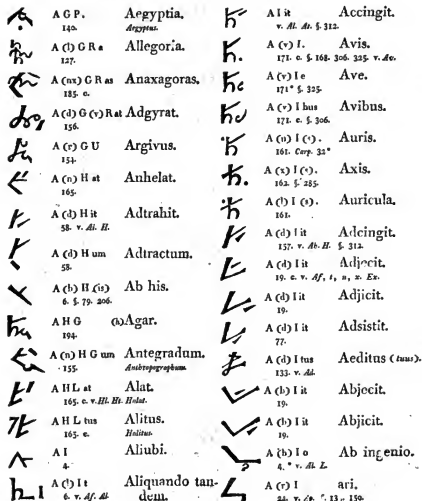 A G P. Aegyptia.
140. Aegyptus.
A (l) G R a Allegoria.
127.
A (nx) G R as Anaxagoras.
185. c.
A (d) G (v) R at Adgyrat.
156.
A (r) G U Argivus.
154.
A (n) H at Anhelat.
165.
A (d) H it Adtrahit.
58. v. Al. H.
A (d) H um Adtractum.
58.
A (b) H (is) Ab his.
6. §. 79. 206.
A H G (h)Agar.
194.
A (n) H G um Antegradum.
155. Anthropographum.
A H L at Alat.
165. c. v. Hl. Ht. Halat.
A H L tus Alitus.
165. c. Halitus.
A I Aliubi.
4.
A (l) I t Aliquando tan-
6. v. Af. Al dem.
A I it Accingit.
v. Al. As. §. 312.
A (v) I. Avis.
171. c. §. 168. 306. 325. v. Av.
A (v) I e Ave.
171* §. 325.
A (v) I bus Avibus.
171. c. §. 306.
A (u) I (s). Auris.
161. Carp. 32*
A (x) I (s). Axis.
162. §. 285.
A (b) I (s). Auricula.
161.
A (d) I it Adcingit.
157. v. Ab. H. §. 312.
A (d) I it Adjecit.
19. c. v. Af, t, u, x. Ex.
A (d) I it Adjicit.
19.
A (d) I it Adsistit.
77.
A (d) I tus Aeditus (tuus).
133. v. Ad.
A (b) I it Abjecit.
19.
A (b) I it Abjicit.
19.
A (b) I o Ab ingenio.
4. * v. Al. L.
A (r) I ari.